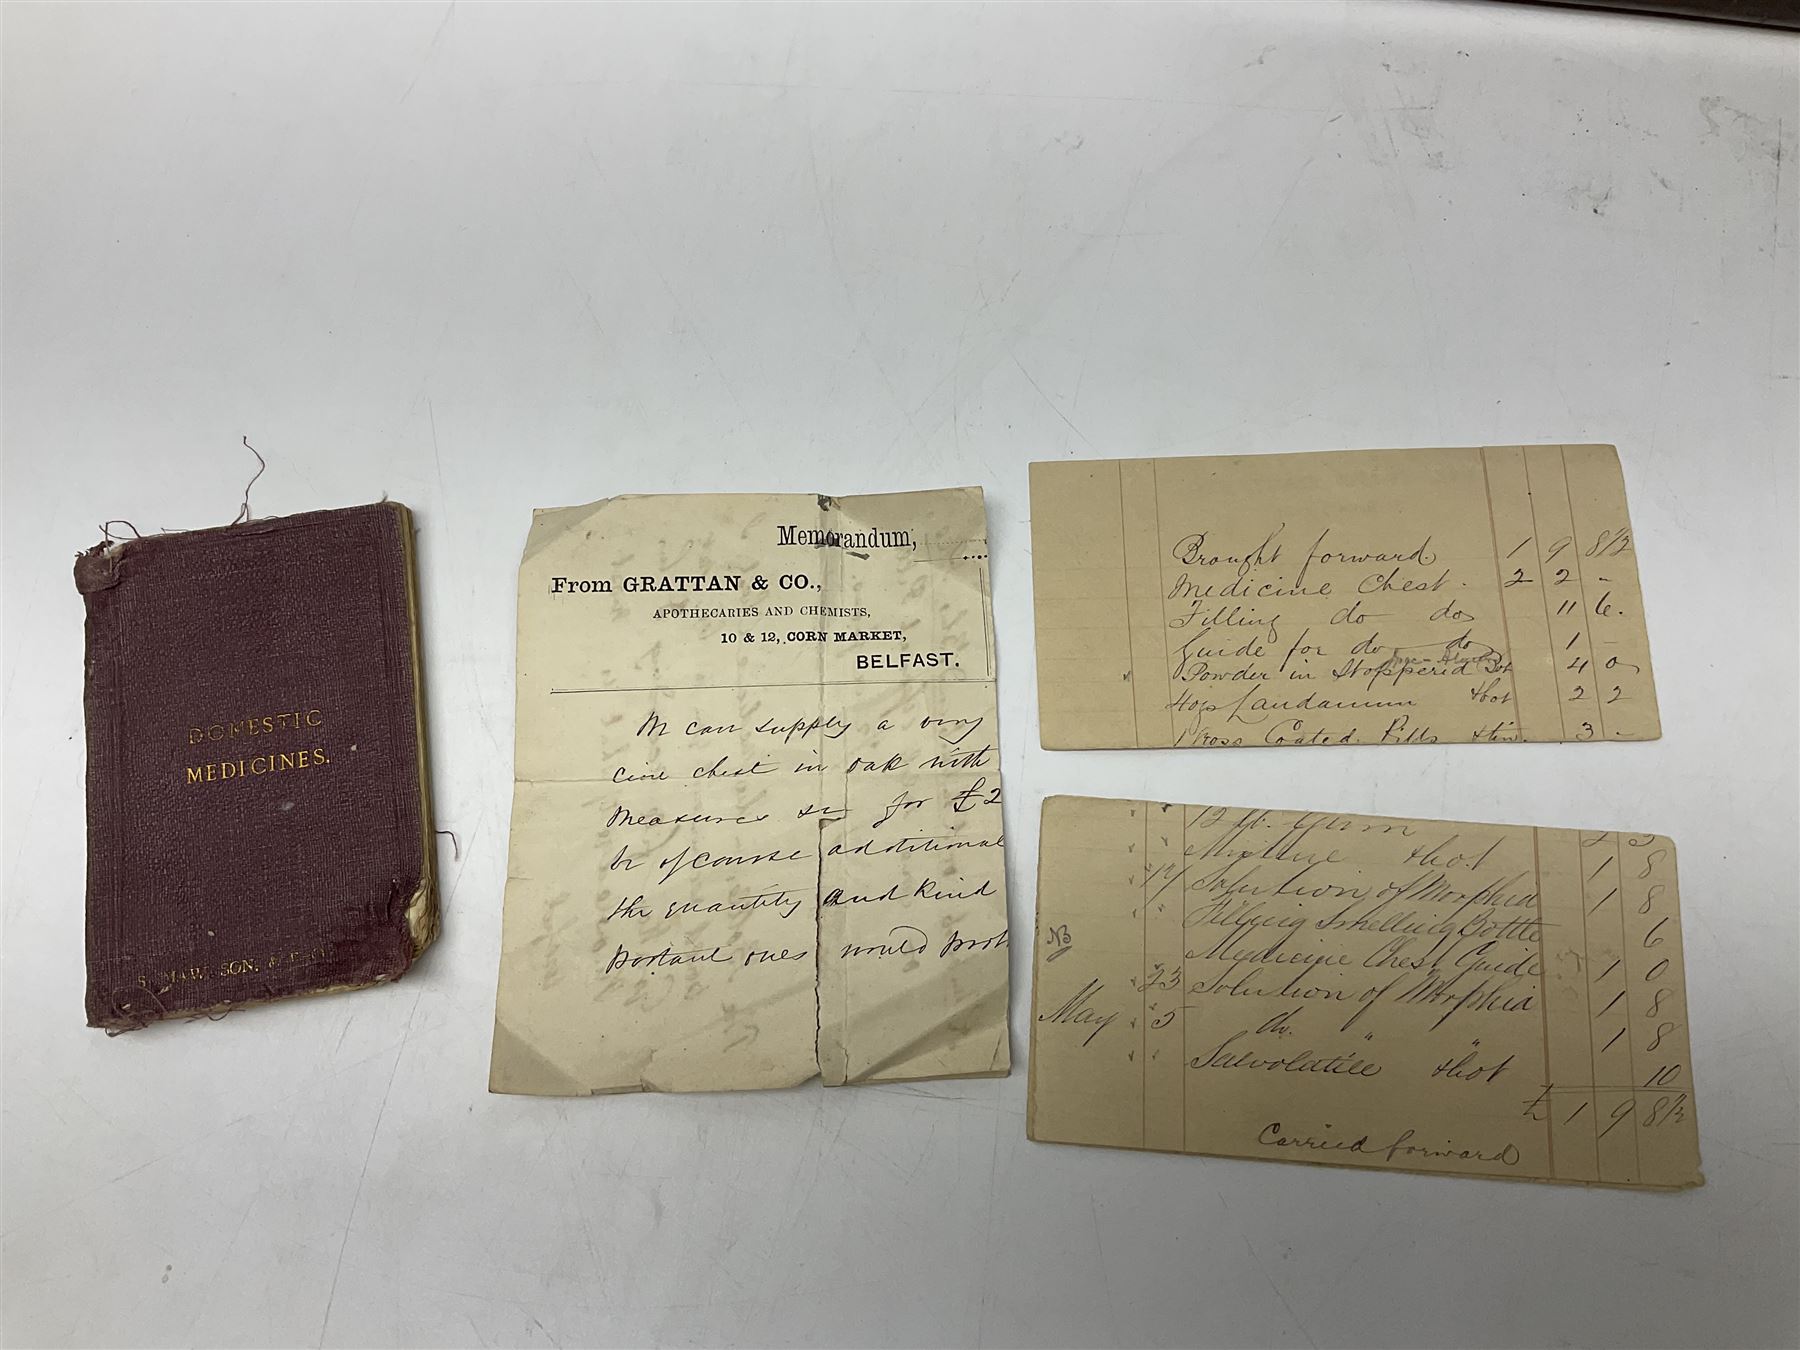 DOMESTIC
MEDICINES.
S. MAW, SON, &
Memorandum,
From GRATTAN & CO.,
APOTHECARIES AND CHEMISTS,
10 & 12, CORN MARKET,
BELFAST.
can supply a very
chest in oak with
measures for £2
be of course additional
the quantity and kind
portant ones would prob
Brought forward 1 9 8½
Medicine Chest. 2 2 -
Filling do do 11 6.
Guide for do do 1 -
Powder in Stoppered Bot 4 0
4 ozs Laudanum & bot 2 2
1 Gross Coated Pills & tin. 3 -
12
Mixture & bot. 1 8
14 Solution of Morphia 1 8
Filling Smelling Bottle 6
NB Medicine Chest Guide 1 0
23 Solution of Morphia 1 8
May 5 do. " " 1 8
Salvolatile & bot 10
£ 1 9 8½
Carried forward